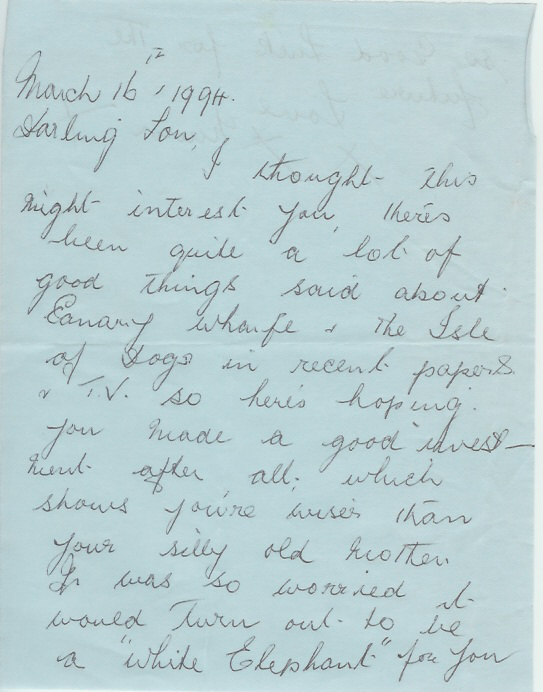 March 16th, 1994.
Darling Son,
I thought this
might interest you, there's
been quite a lot of
good things said about
Canary Wharfe & The Isle
of Dogs in recent papers
& T.V. so here's hoping
you made a good invest-
ment after all, which
shows you're wiser than
your silly old Mother.
I was so worried it
would turn out to be
a "White Elephant" for you